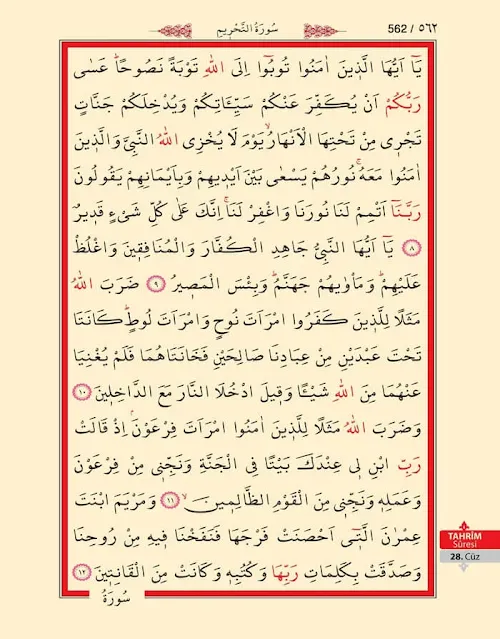 سُورَةُ التَّحْرٖيمِ
562 / ٥٦٢
يَٓا اَيُّهَا الَّذٖينَ اٰمَنُوا تُوبُٓوا اِلَى اللّٰهِ تَوْبَةً نَصُوحًاؕ عَسٰى
رَبُّكُمْ اَنْ يُكَفِّرَ عَنْكُمْ سَيِّـَٔاتِكُمْ وَيُدْخِلَكُمْ جَنَّاتٍ
تَجْرٖى مِنْ تَحْتِهَا الْاَنْهَارُۙ يَوْمَ لَا يُخْزِى اللّٰهُ النَّبِىَّ وَالَّذٖينَ
اٰمَنُوا مَعَهُۚ نُورُهُمْ يَسْعٰى بَيْنَ اَيْدٖيهِمْ وَبِاَيْمَانِهِمْ يَقُولُونَ
رَبَّنَٓا اَتْمِمْ لَنَا نُورَنَا وَاغْفِرْ لَنَاۚ اِنَّكَ عَلٰى كُلِّ شَىْءٍ قَدٖيرٌ
﴿٨﴾ يَٓا اَيُّهَا النَّبِىُّ جَاهِدِ الْكُفَّارَ وَالْمُنَافِقٖينَ وَاغْلُظْ
عَلَيْهِمْؕ وَمَأْوٰيهُمْ جَهَنَّمُؕ وَبِئْسَ الْمَصٖيرُ ﴿٩﴾ ضَرَبَ اللّٰهُ
مَثَلًا لِلَّذٖينَ كَفَرُوا امْرَاَتَ نُوحٍ وَامْرَاَتَ لُوطٍؕ كَانَتَا
تَحْتَ عَبْدَيْنِ مِنْ عِبَادِنَا صَالِحَيْنِ فَخَانَتَاهُمَا فَلَمْ يُغْنِيَا
عَنْهُمَا مِنَ اللّٰهِ شَيْـًٔا وَقٖيلَ ادْخُلَا النَّارَ مَعَ الدَّاخِلٖينَ ﴿١٠﴾
وَضَرَبَ اللّٰهُ مَثَلًا لِلَّذٖينَ اٰمَنُوا امْرَاَتَ فِرْعَوْنَۘ اِذْ قَالَتْ
رَبِّ ابْنِ لٖى عِنْدَكَ بَيْتًا فِى الْجَنَّةِ وَنَجِّنٖى مِنْ فِرْعَوْنَ
وَعَمَلِهٖ وَنَجِّنٖى مِنَ الْقَوْمِ الظَّالِمٖينَۙ ﴿١١﴾ وَمَرْيَمَ ابْنَتَ
عِمْرٰنَ الَّتٖٓى اَحْصَنَتْ فَرْجَهَا فَنَفَخْنَا فٖيهِ مِنْ رُوحِنَا
وَصَدَّقَتْ بِكَلِمَاتِ رَبِّهَا وَكُتُبِهٖ وَكَانَتْ مِنَ الْقَانِتٖينَ ﴿١٢﴾
سُورَةُ
TAHRÎM
Sûresi
28. Cüz